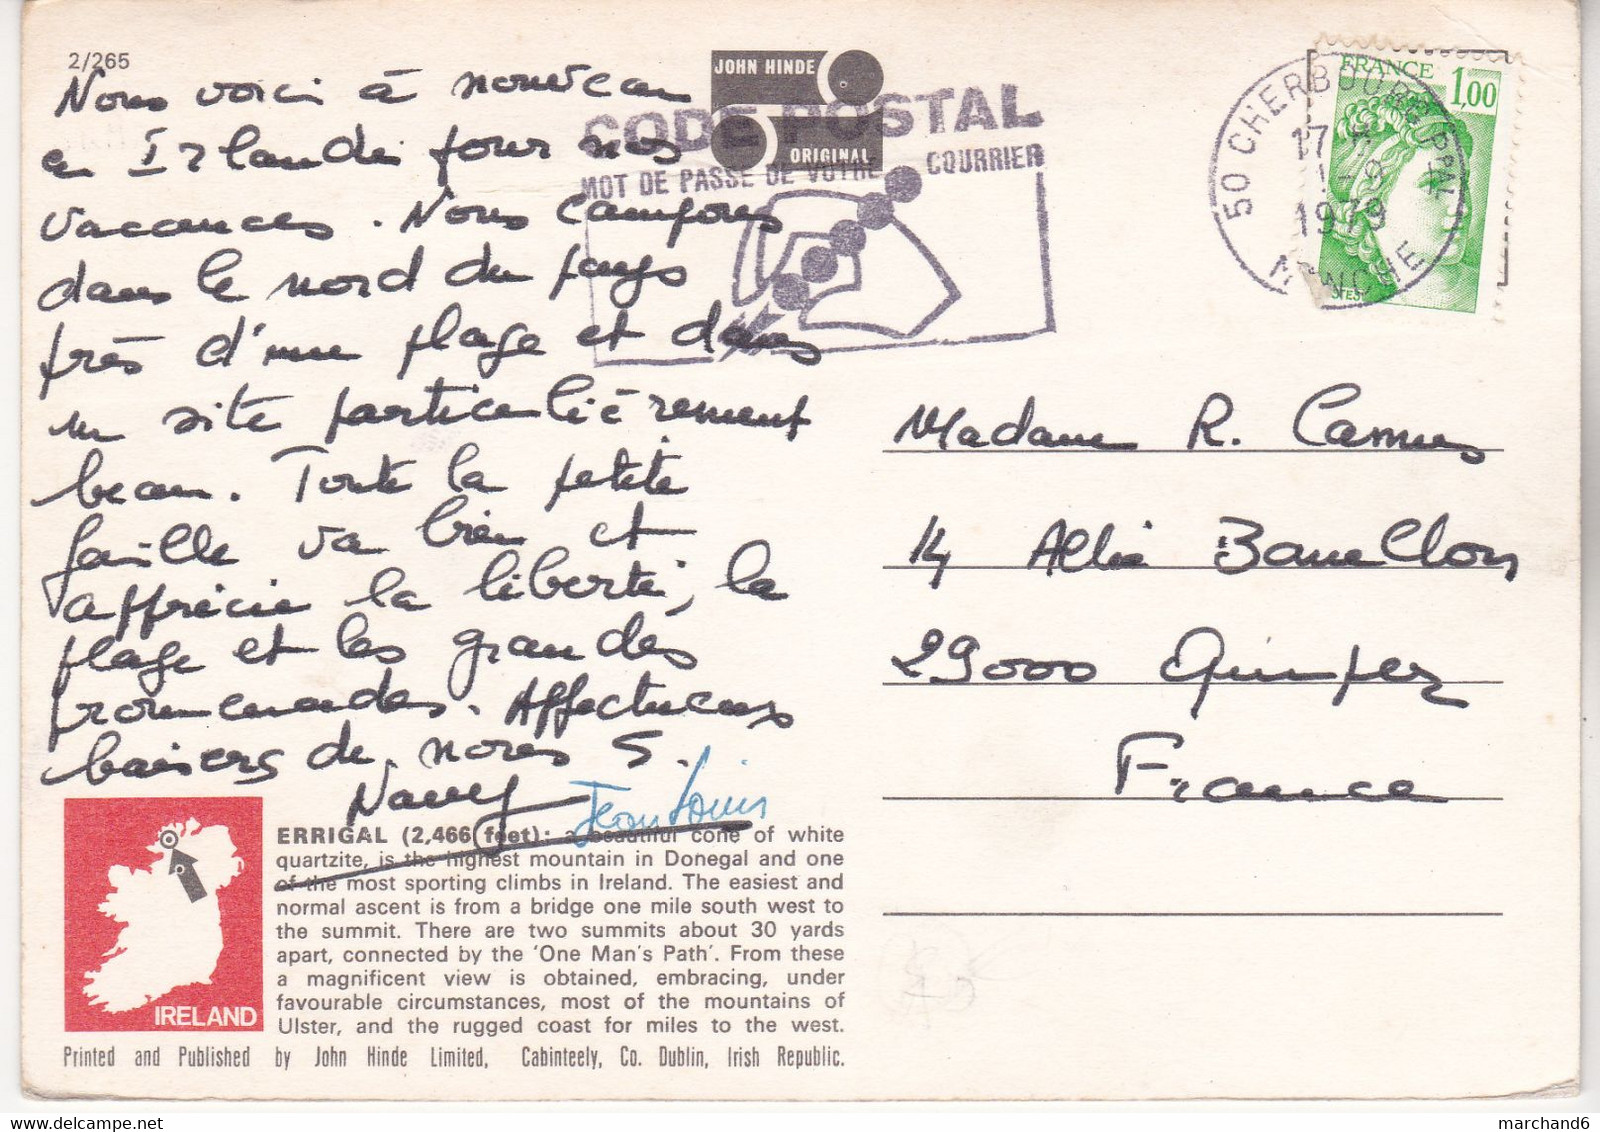 2/265
JOHN HINDE
ORIGINAL
CODE POSTAL
MOT DE PASSE DE VOTRE COURRIER
FRANCE
1,00
50 CHERBOURG PPAL
17 H
1979
MANCHE
Nous voici à nouveau
en Irlande pour nos
vacances. Nous campons
dans le nord du pays
près d'une plage et dans
un site particulièrement
beau. Toute la petite
famille va bien et
apprécie la liberté, la
plage et les grandes
promenades. Affectueux
baisers de nous 5.
Nancy Jean Louis
Madame R. Camus
14 Allée
29000 Quimper
France
ERRIGAL (2,466 feet): a beautiful cone of white
quartzite, is the highest mountain in Donegal and one
of the most sporting climbs in Ireland. The easiest and
normal ascent is from a bridge one mile south west to
the summit. There are two summits about 30 yards
apart, connected by the 'One Man's Path'. From these
a magnificent view is obtained, embracing, under
favourable circumstances, most of the mountains of
Ulster, and the rugged coast for miles to the west.
IRELAND
Printed and Published by John Hinde Limited, Cabinteely, Co. Dublin, Irish Republic.
www.delcampe.net
marchand6